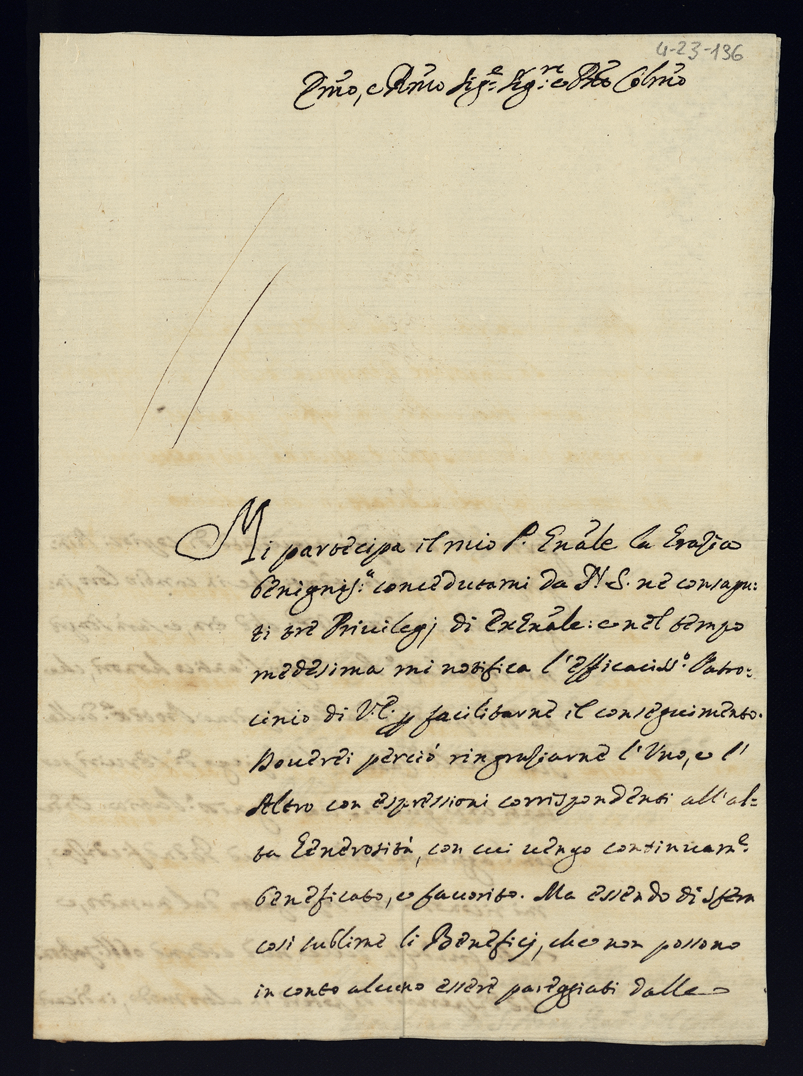 4-23-136
Emo, e Rmo Sig.e Sig.re e Pñe Cölmo
Mi partecipa il mio P. Gnãle la Grazia
benigniss.a concedutami da N. S. ne consagu:
ti tre Privilegj di ExGnãle: e nel tempo
medesima mi notifica l'efficaciss.o Patro-
cinio di V. E. p facilitarne il conseguimento.
Dovrei perciò ringraziarne l'Uno, e l'
Altro con espressioni corrispondenti all'al-
ta Generosità, con cui vengo continuam.e
beneficato, e favorito. Ma essendo di sfera
così sublime li Beneficj, che non possono
in conto alcuno essere pareggiati dalle